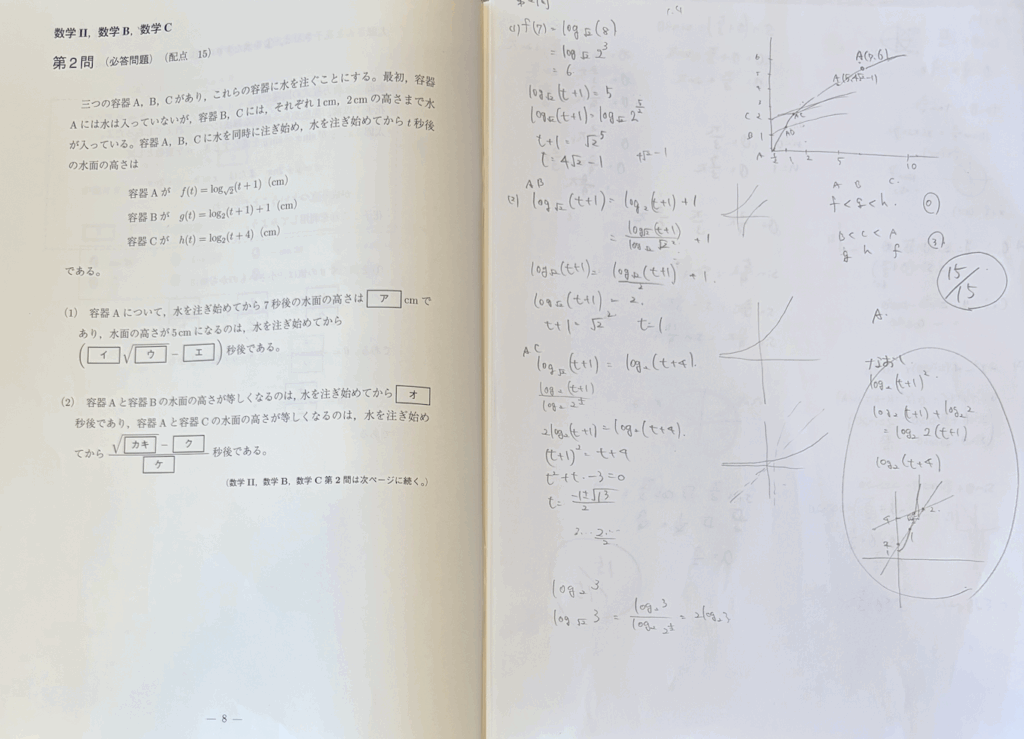 数学II, 数学B, 数学C
第2問 (必答問題) (配点 15)
三つの容器A, B, Cがあり, これらの容器に水を注ぐことにする。最初, 容器
Aには水は入っていないが, 容器B, Cには, それぞれ1cm, 2cmの高さまで水
が入っている。容器A, B, Cに水を同時に注ぎ始め, 水を注ぎ始めてからt秒後
の水面の高さは
容器Aが f(t)=log√2(t+1) (cm)
容器Bが g(t)=log2(t+1)+1 (cm)
容器Cが h(t)=log2(t+4) (cm)
である。
(1) 容器Aについて, 水を注ぎ始めてから7秒後の水面の高さは ア cmで
あり, 水面の高さが5cmになるのは, 水を注ぎ始めてから
(イ√ウ − エ) 秒後である。
(2) 容器Aと容器Bの水面の高さが等しくなるのは, 水を注ぎ始めてから オ
秒後であり, 容器Aと容器Cの水面の高さが等しくなるのは, 水を注ぎ始め
てから (√カキ − ク)/ケ 秒後である。
(数学II, 数学B, 数学C第2問は次ページに続く。)
— 8 —
(1) f(7) = log√2(8)
= log√2 2^3
= 6
log√2(t+1) = 5
log√2(t+1) = log√2 2^(5/2)
t+1 = √2^5
t = 4√2-1 4√2-1
A B
(2) log√2(t+1) = log2(t+1)+1
= log√2(t+1)/log√2 √2^2 + 1
log√2(t+1) = log√2(t+1)/2 + 1.
log√2(t+1) = 2.
t+1 = √2^2 t=1
A C
log√2(t+1) = log2(t+4).
log2(t+1)/log2 2^(1/2)
2log2(t+1) = log2(t+4).
(t+1)^2 = t+4
t^2+t-3=0
t= (-1±√13)/2
log2 3
log√2 3 = log2 3/log2 2^(1/2) = 2log2 3
A(7,6)
A(5,4√2-1)
C 2
B 1
A
1 2 5 10
A B C.
f<g<h. ⓪
B<C<A
g h f ③
15/15
A.
log2(t+1)^2.
log2(t+1)+log2 2
= log2 2(t+1)
log2(t+4)